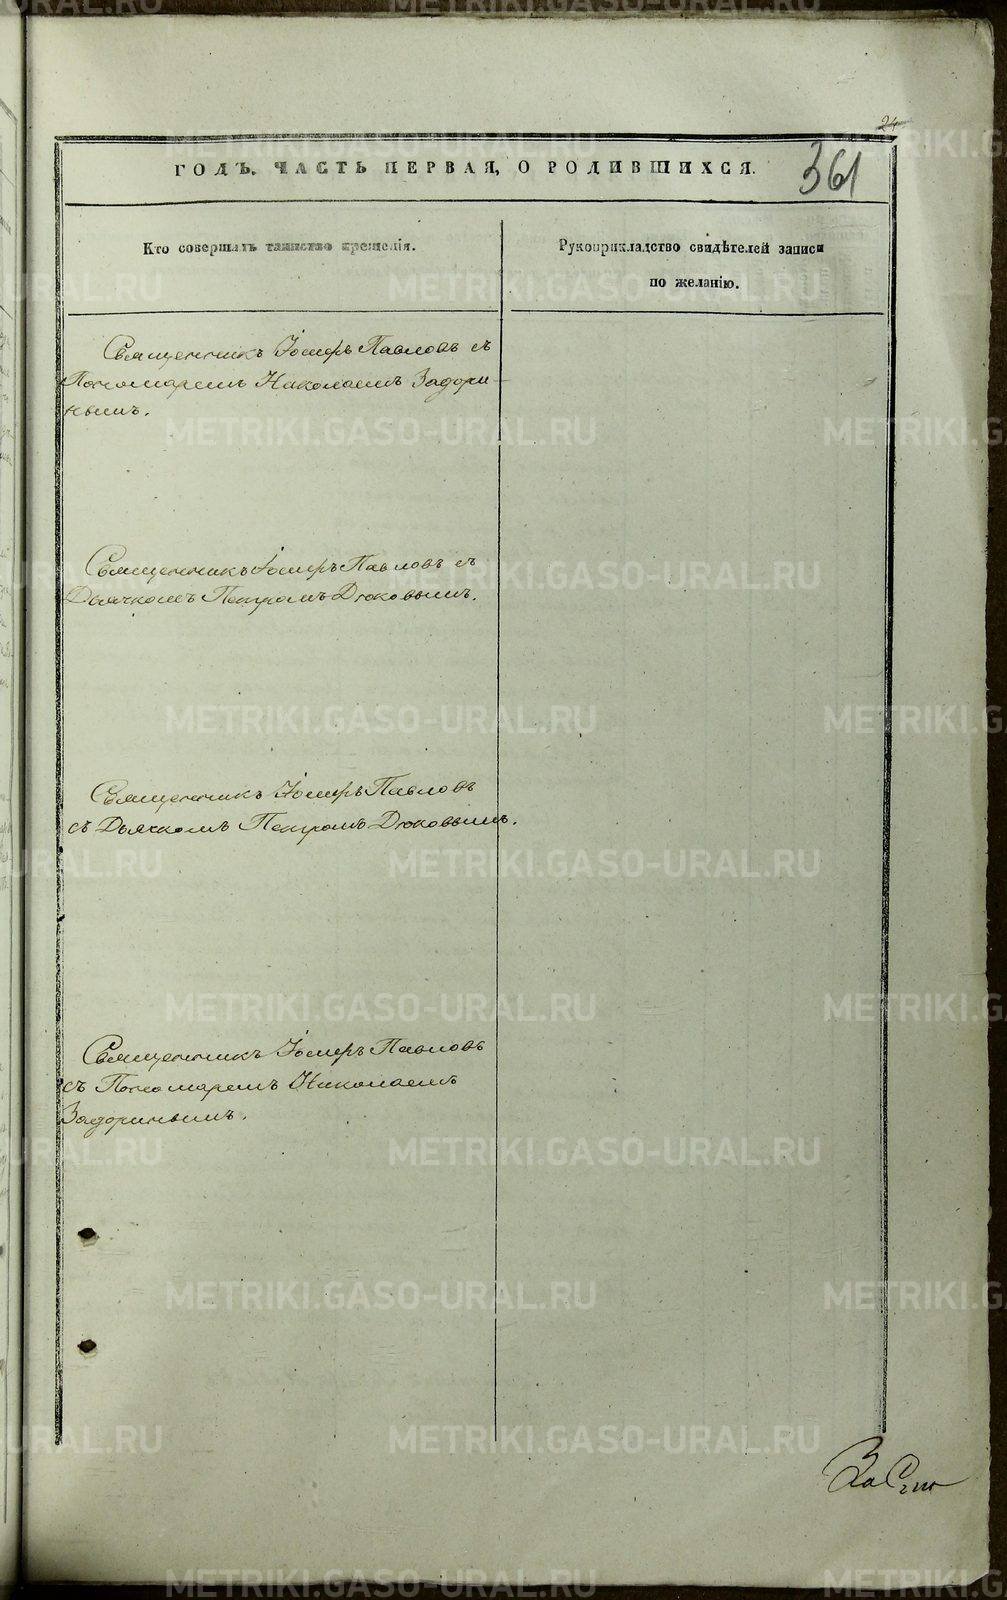 24
361
ГОДЪ. ЧАСТЬ ПЕРВАЯ, О РОДИВШИХСЯ.
Кто совершалъ таинство крещенія.
Рукоприкладство свидѣтелей записи
по желанію.
Священникъ Іосифъ Павловъ съ
Пономаремъ Николаемъ Задори-
нымъ.
Священникъ Іосифъ Павловъ съ
Дьячкомъ Петромъ Дюковымъ.
Священникъ Іосифъ Павловъ
съ Дьячкомъ Петромъ Дюковымъ.
Священникъ Іосифъ Павловъ
съ Пономаремъ Николаемъ
Задоринымъ.
METRIKI.GASO-URAL.RU